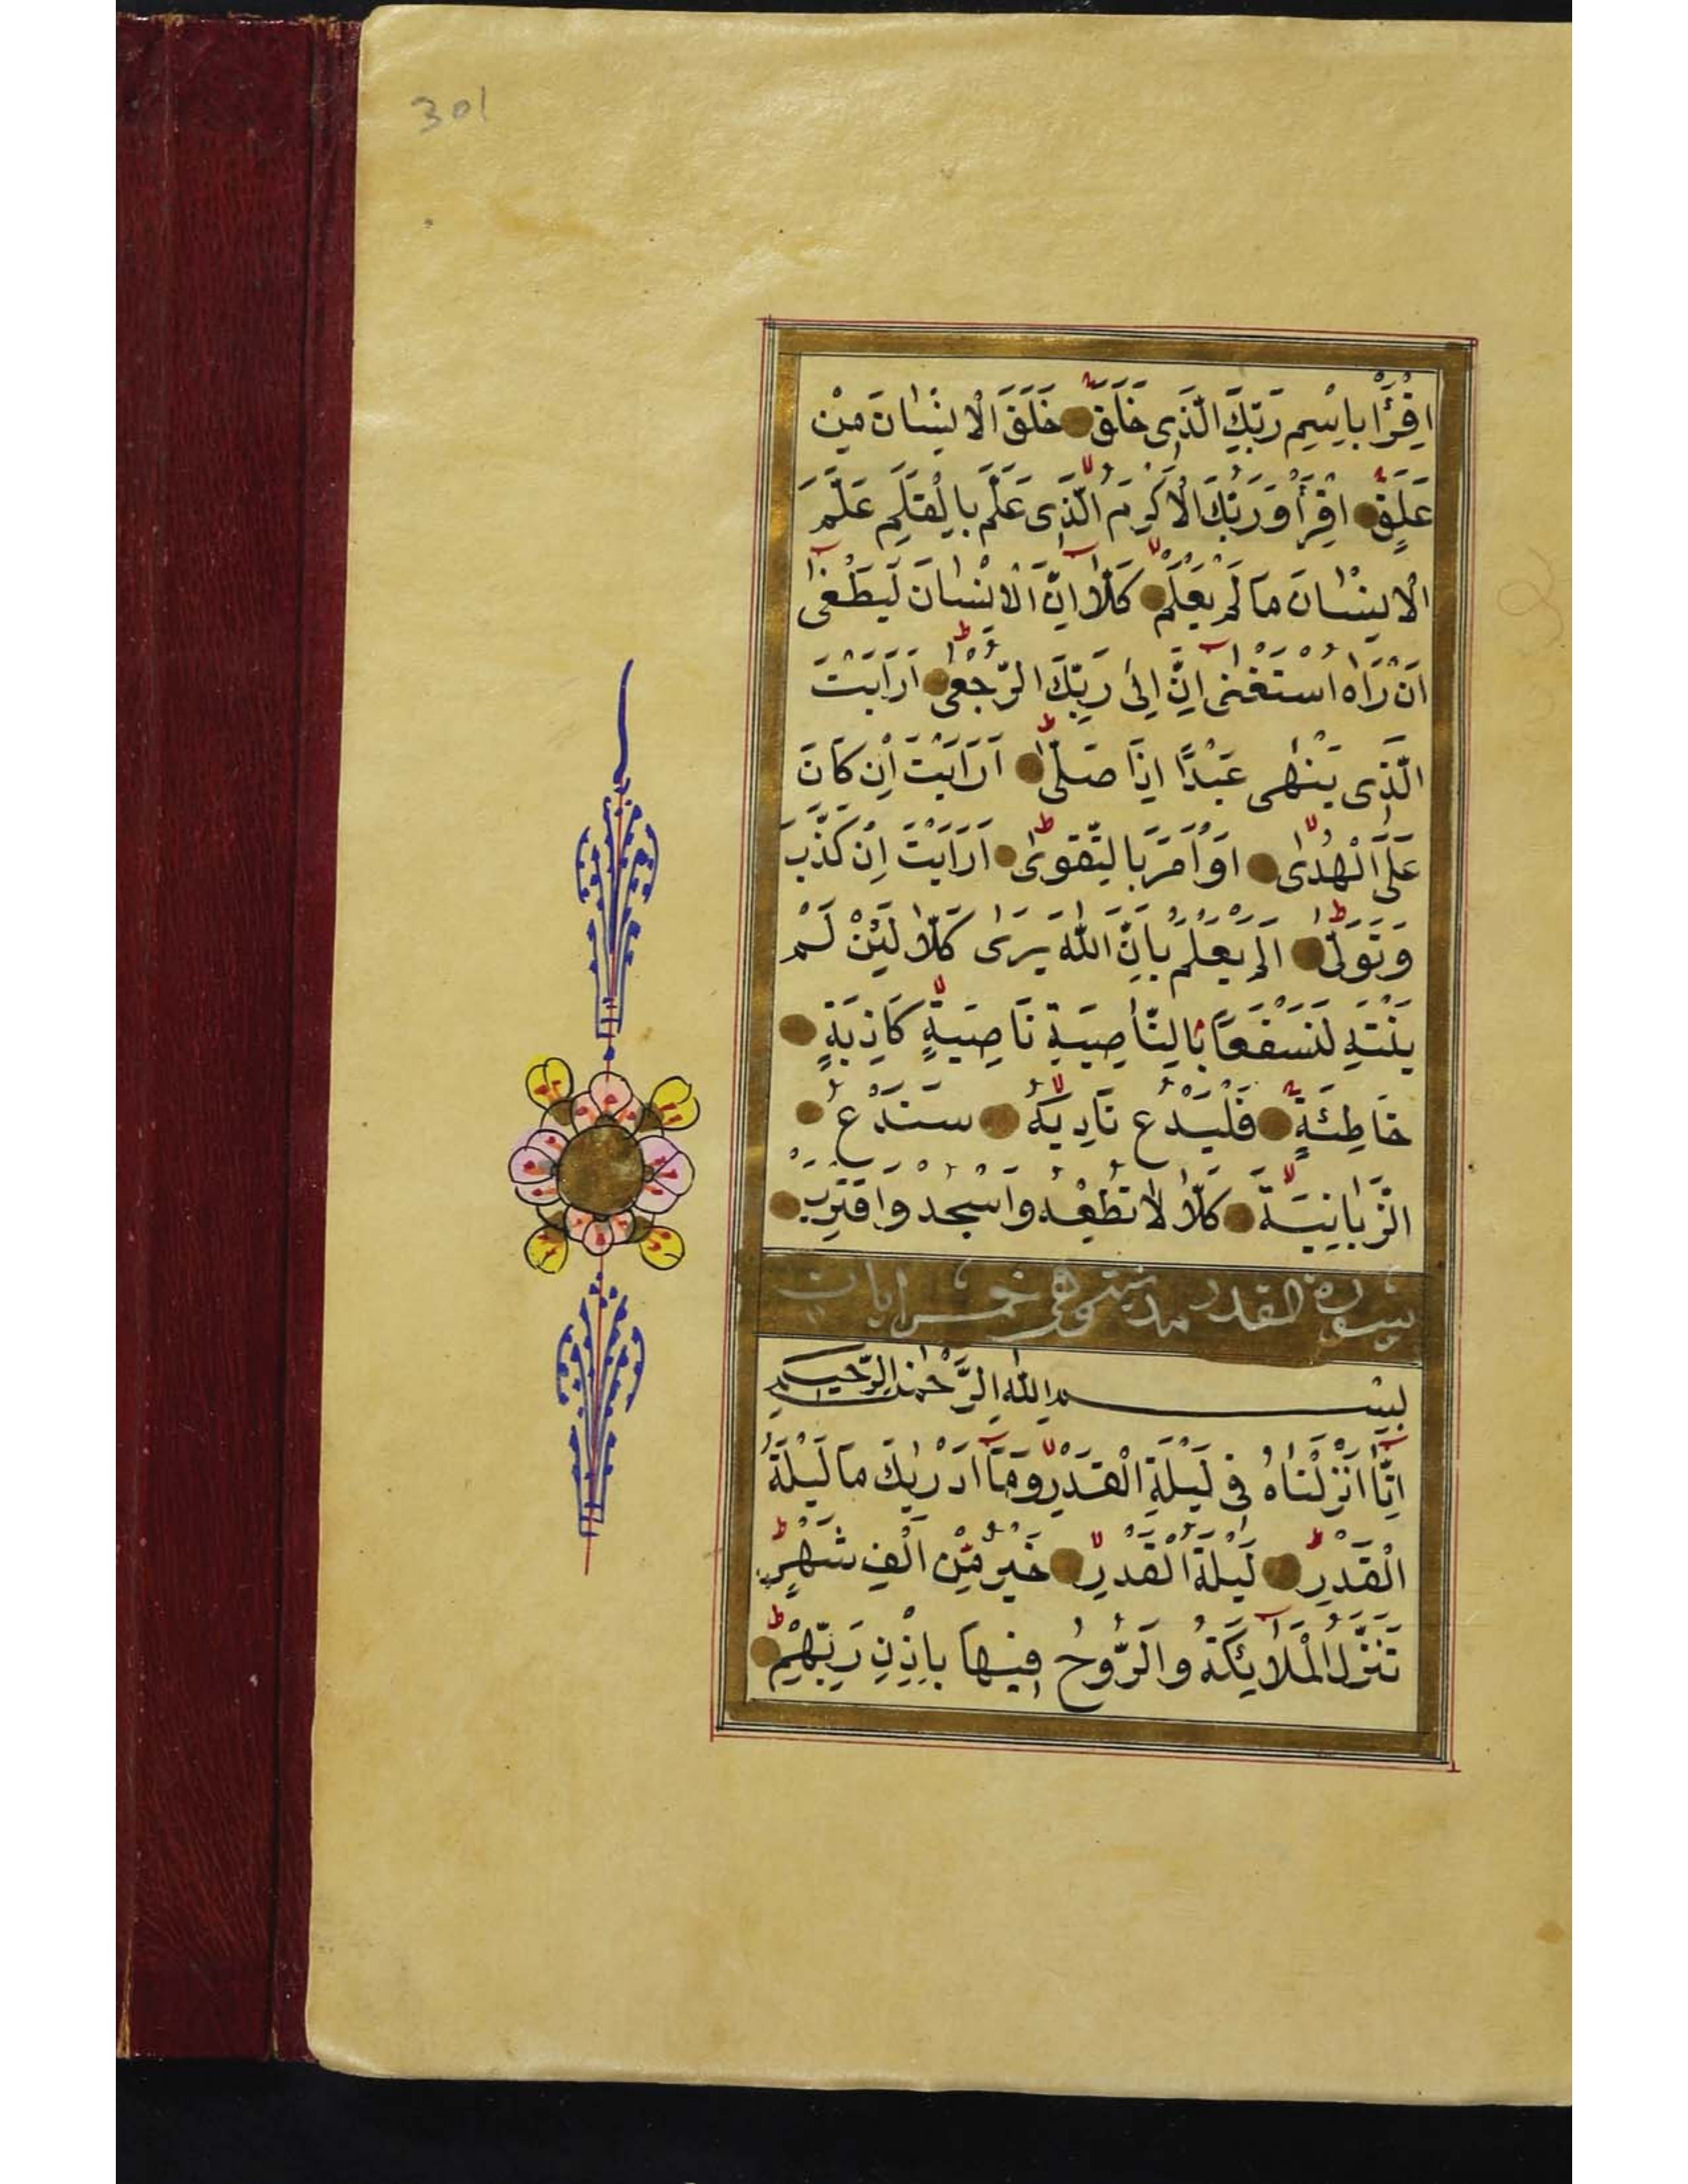 301
اِقْرَأْ بِاِسْمِ رَبِّكَ الَّذِى خَلَقَ خَلَقَ الْاِنْسٰانَ مِنْ
عَلَقٍ اِقْرَأْ وَرَبُّكَ الْاَكْرَمُ الَّذِى عَلَّمَ بِالْقَلَمِ عَلَّمَ
الْاِنْسٰانَ مَا لَمْ يَعْلَمْ كَلَّا اِنَّ الْاِنْسٰانَ لَيَطْغٰى
اَنْ رَاٰهُ اسْتَغْنٰى اِنَّ اِلٰى رَبِّكَ الرُّجْعٰى اَرَاَيْتَ
الَّذِى يَنْهٰى عَبْدًا اِذَا صَلّٰى اَرَاَيْتَ اِنْ كَانَ
عَلَى الْهُدٰى اَوْ اَمَرَ بِالتَّقْوٰى اَرَاَيْتَ اِنْ كَذَّبَ
وَتَوَلّٰى اَلَمْ يَعْلَمْ بِاَنَّ اللّٰهَ يَرٰى كَلَّا لَئِنْ لَمْ
يَنْتَهِ لَنَسْفَعًا بِالنَّاصِيَةِ نَاصِيَةٍ كَاذِبَةٍ
خَاطِئَةٍ فَلْيَدْعُ نَادِيَهُ سَنَدْعُ
الزَّبَانِيَةَ كَلَّا لَا تُطِعْهُ وَاسْجُدْ وَاقْتَرِبْ
سورة القدر مدنية وهى خمس ايات
بِسْمِ اللّٰهِ الرَّحْمٰنِ الرَّحِيمِ
اِنَّا اَنْزَلْنَاهُ فِى لَيْلَةِ الْقَدْرِ وَمَا اَدْرٰيكَ مَا لَيْلَةُ
الْقَدْرِ لَيْلَةُ الْقَدْرِ خَيْرٌ مِنْ اَلْفِ شَهْرٍ
تَنَزَّلُ الْمَلَائِكَةُ وَالرُّوحُ فِيهَا بِاِذْنِ رَبِّهِمْ